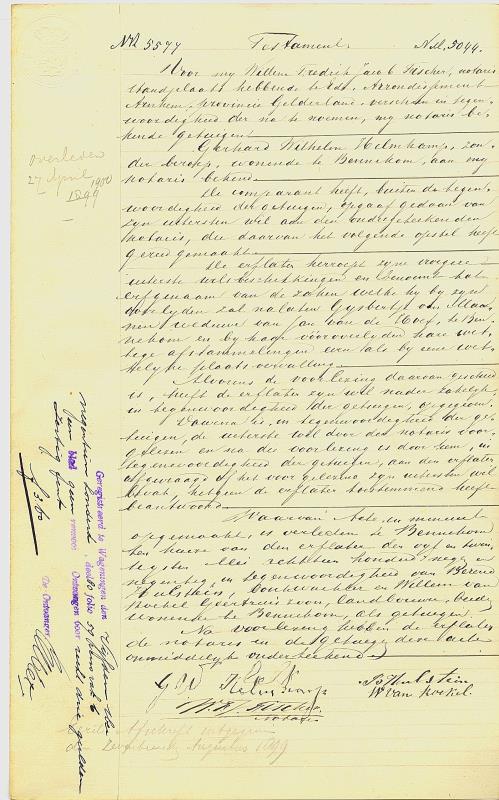 No 5577 Testament. No 5044.
Voor my Willem Fredrik Jacob Fischer, notaris
standplaats hebbende te Ede, Arrondissement
Arnhem, provincie Gelderland, verscheen in tegen-
woordigheid der na te noemen, my notaris be-
kende getuigen
Gerhard Wilhelm Helmkamp, zon-
der beroep, wonende te Bennekom, aan my
notaris bekend.
De comparant heeft, buiten de tegen-
woordigheid der getuigen, opgaaf gedaan van
zyn uitersten wil aan den ondergeteekenden
notaris, die daarvan het volgende opstel heeft
gereed gemaakt.
De erflater herroept zyne vroegere
uiterste wilsbeschikkingen en benoemt tot
erfgenaam van de zaken welke hy by zyn
overlyden zal nalaten Gysbertje van
weduwe van Jan van de Hoef, te Ben-
nekom en by haar vooroverlyden hare wet-
tige afstammelingen eventals by eene wet-
telyke plaatsvervulling.
Alvorens de voorlezing daarvan geschied
is, heeft de erflater zyn wil nader zakelyk
in tegenwoordigheid der getuigen, opgegeven.
Daarna is, in tegenwoordigheid der ge-
tuigen, de uiterste wil door den notaris voor-
gelezen en na die voorlezing is door hem, in
tegenwoordigheid der getuigen, aan den erflater
afgevraagd of het voorgelezene zyn uitersten wil
bevat, hetgeen de erflater toestemmend heeft
beantwoord.
Waarvan Acte, in minuut
opgemaakt, is verleden te Bennekom
ten huize van den erflater den vyf en twin-
tigsten Mei achttien honderd negen en
negentig, in tegenwoordigheid van Berend
Hulstein, bouwman en Willem van
Roekel Geertruiszoon, landbouwer, beide
wonende te Bennekom als getuigen.
Na voorlezing hebben de erflater
de notaris en de getuigen deze acte
onmiddelyk onderteekend.
G W Helmkamp
B Hulstein
W van Roekel.
W F J Fischer
notaris
Afschrift uitgegeven
den Augustus 1899
overleden
27 April 1900
1899
Geregistreerd te Wageningen den
negentien honderd deel 50 folio 59
een blad geen renvooi
Ontvangen voor recht drie gulden
zestig cent
f 3.60
De Ontvanger